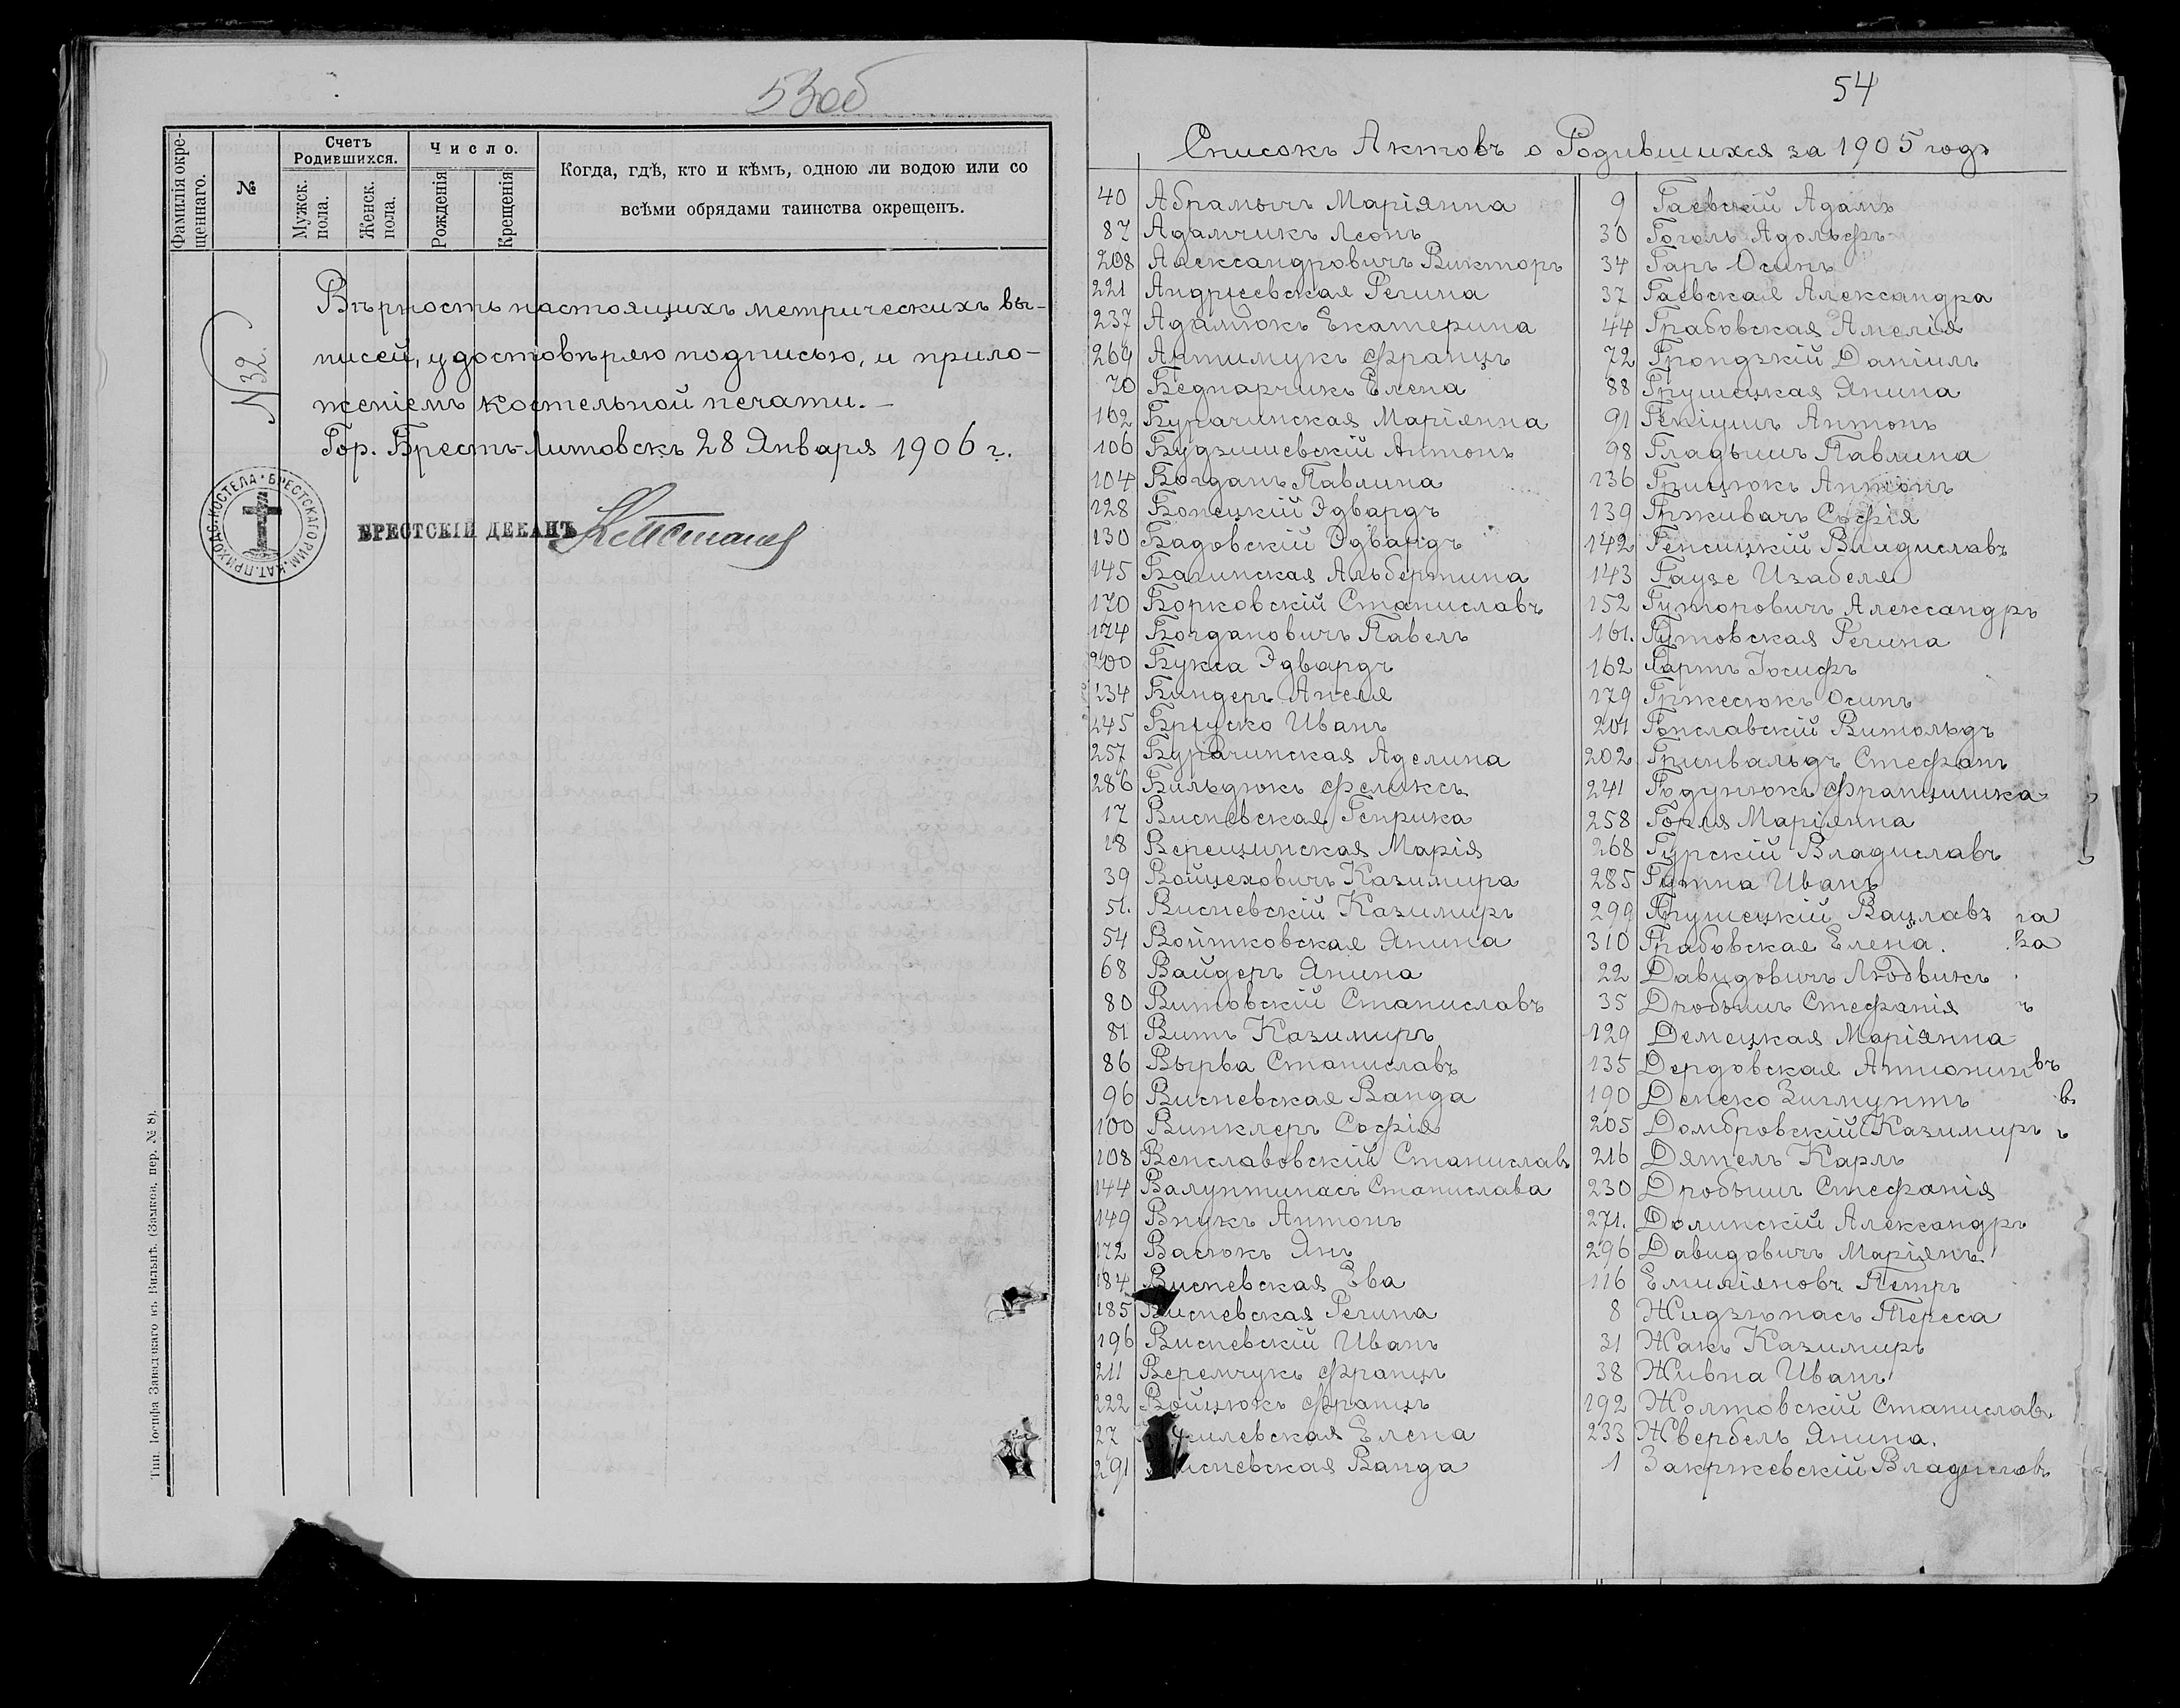 53об
Фамилія окре-
щеннаго.
№
Счетъ
Родившихся.
Мужск.
пола.
Женск.
пола.
Число.
Рожденія
Крещенія
Когда, гдѣ, кто и кѣмъ, одною ли водою или со
всѣми обрядами таинства окрещенъ.
N 32.
Вѣрность настоящихъ метрическихъ вы-
писей, удостовѣряю подписью, и прило-
женіемъ костельной печати. –
Гор. Брестъ-Литовскъ 28 Января 1906 г.
БРЕСТСКАГО РИМ. КАТ. ПРИХОД. КОСТЕЛА
БРЕСТСКІЙ ДЕКАНЪ
Тип. Іосифа Завадзкаго въ Вильнѣ. (Замков. пер. № 8).
54
Списокъ Актовъ о Родившихся за 1905 годъ
40 Абрамычъ Маріянна
87 Адамчикъ Леонъ
208 Александровичъ Викторъ
221 Андреевская Регина
237 Адамюкъ Екатерина
269 Антимукъ Францъ
70 Беднарчикъ Елена
102 Бурачинская Маріянна
106 Будзишевскій Антонъ
104 Богданъ Павлина
128 Бонецкій Эдвардъ
130 Бадовскій Эдвардъ
145 Багинская Альбертина
170 Борковскій Станиславъ
174 Богдановичъ Павелъ
200 Букса Эдвардъ
234 Биндеръ Анеля
245 Бруско Иванъ
257 Бурачинская Аделина
286 Бильдюкъ Феликсъ
17 Висневская Генрика
28 Верещинская Марія
39 Войцеховичъ Казимира
51. Висневскій Казимиръ
54 Войтковская Янина
68 Вайдеръ Янина
80 Витовскій Станиславъ
81 Витъ Казимиръ
86 Вырва Станиславъ
96 Висневская Ванда
100 Винклеръ Софія
108 Венславовскій Станиславъ
144 Валунтинасъ Станислава
149 Внукъ Антонъ
172 Васюкъ Янъ
184 Висневская Ева
185 Висневская Регина
196 Висневскій Иванъ
211 Веремчукъ Францъ
222 Войцюкъ Францъ
27 илевская Елена
291 исневская Ванда
9 Гаевскій Адамъ
30 Гоголь Адольфъ
34 Гаръ Осипъ
37 Гаевская Александра
44 Грабовская Амелія
72 Грондзкій Даніилъ
88 Грушецкая Янина
91 Геніушъ Антонъ
98 Гладышъ Павлина
136 Грицюкъ Антонъ
139 Грживачъ Софія
142 Генсицкій Владиславъ
143 Гаузе Изабеля
152 Гуторовичъ Александръ
161. Гутовская Регина
162 Гартъ Іосифъ
179 Гржесюкъ Осипъ
201 Гонславскій Витольдъ
202 Гринвальдъ Стефанъ
241 Годунюкъ Францишка
258 Горля Маріянна
268 Гурскій Владиславъ
285 Гутна Иванъ
299 Грушецкій Вацлавъ га
310 Грабовская Елена. ва
22 Давидовичъ Людвикъ
35 Дробышъ Стефанія ъ
129 Демецкая Маріянна
135 Дердовская Антонин въ
190 Денско Зигмунтъ в
205 Домбровскій Казимиръ ъ
216 Дятелъ Карлъ
230 Дробышъ Стефанія
271. Долинскій Александръ
296 Давидовичъ Маріянъ
116 Емиліяновъ Петръ
8 Жидзюнасъ Тереса
31 Жакъ Казимиръ
38 Живна Иванъ
192 Жолтовскій Станиславъ
233 Жвербель Янина.
1 Закржевскій Владиславъ